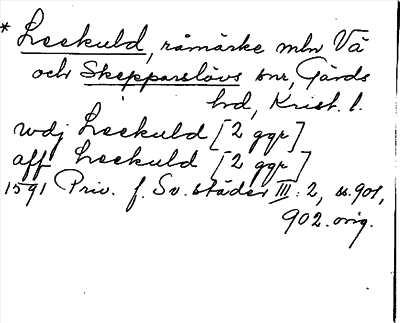 * Leekuld, råmärke mln Vä
och Skepparslövs snr, Gärds
hd, Krist. l.
wdj Leekuld [2 ggr]
aff Leekuld [2 ggr]
1591 Priv. f. Sv. städer III: 2, s. 901,
902. orig.